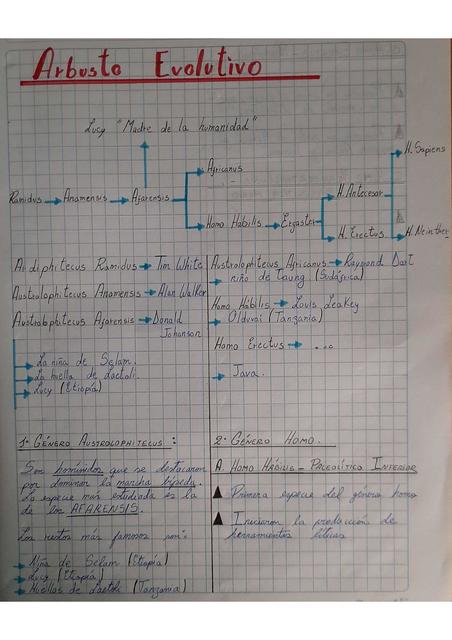 Arbusto Evolutivo
Lucy "Madre de la humanidad"
H. Sapiens
Africanus
Ramidus → Anamensis → Afarensis
H. Antecesor
Homo Habilis → Ergaster
H. Erectus → H. Neinther
Ardiphitecus Ramidus → Tim White
Australophitecus Anamensis → Alan Walker
Australophitecus Afarensis → Donald
Johanson
→ La niña de Selam.
→ La huella de Laetoli.
→ Lucy (Etiopía)
Australophitecus Africanus → Raymond Dart
→ niño de Taung (Sudáfrica)
Homo Habilis → Louis Leakey
→ Olduvai (Tanzania)
Homo Erectus → ...
→ Java.
1· Género Australophitecus :
Son homínidos que se destacaron
por dominar la marcha bípeda.
La especie más estudiada es la
de los AFARENSIS.
Los restos más famosos son:
→ Niña de Selam (Etiopía)
→ Lucy (Etiopía)
→ Huellas de Laetoli (Tanzania)
2· Género Homo.
A. Homo Hábilis - Paleolítico Inferior
▲ Primera especie del género homo
▲ Iniciaron la producción de
herramientas líticas